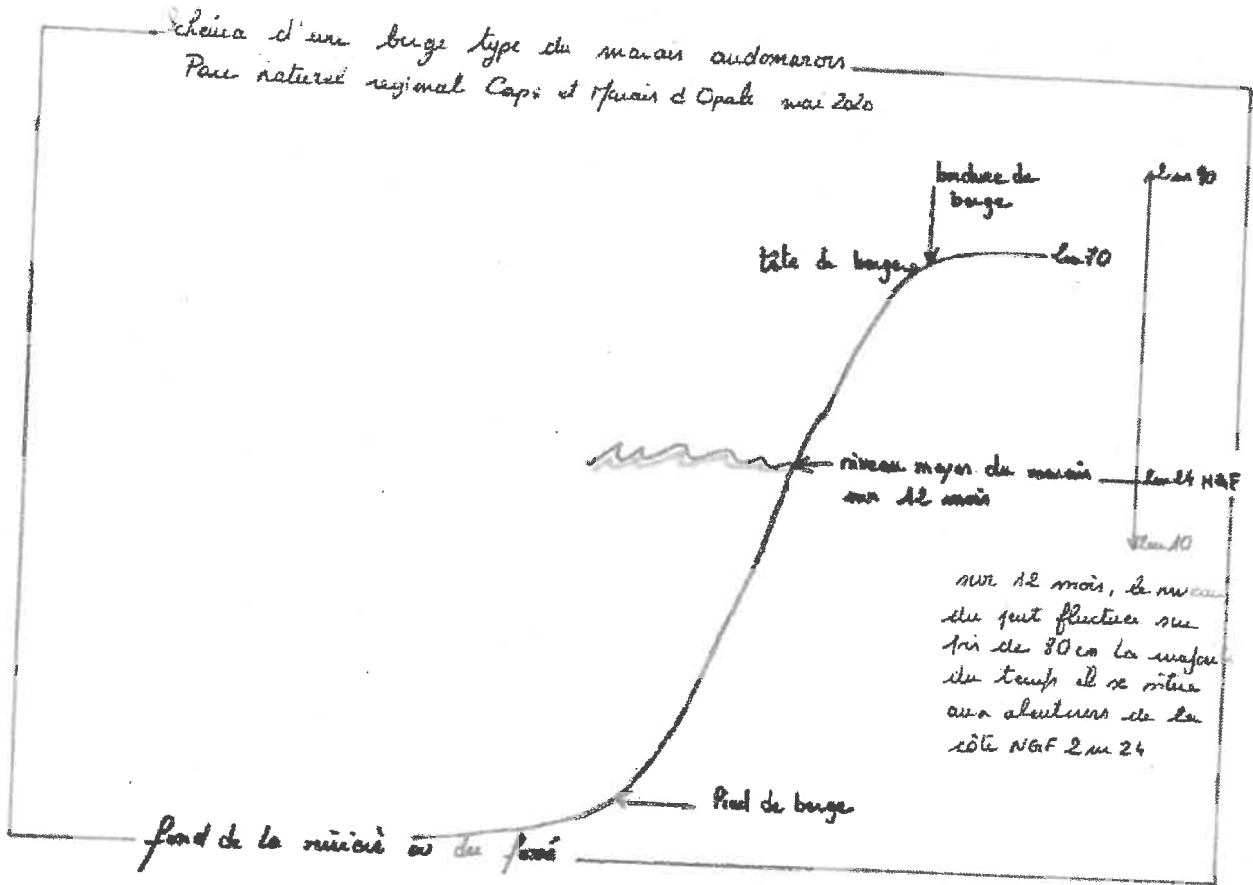 Schéma d'une berge type du marais audomarois
Parc naturel régional Caps et Marais d'Opale mai 2020
bordure de
berge
2m90
tête de berge
2m70
niveau moyen du marais
sur 12 mois
2m24 NGF
2m10
sur 12 mois, le niveau
du peut fluctuer sur
près de 80 cm La majeur
du temps il se situe
aux alentours de la
côte NGF 2m24
Pied de berge
fond de la rivière ou du fossé